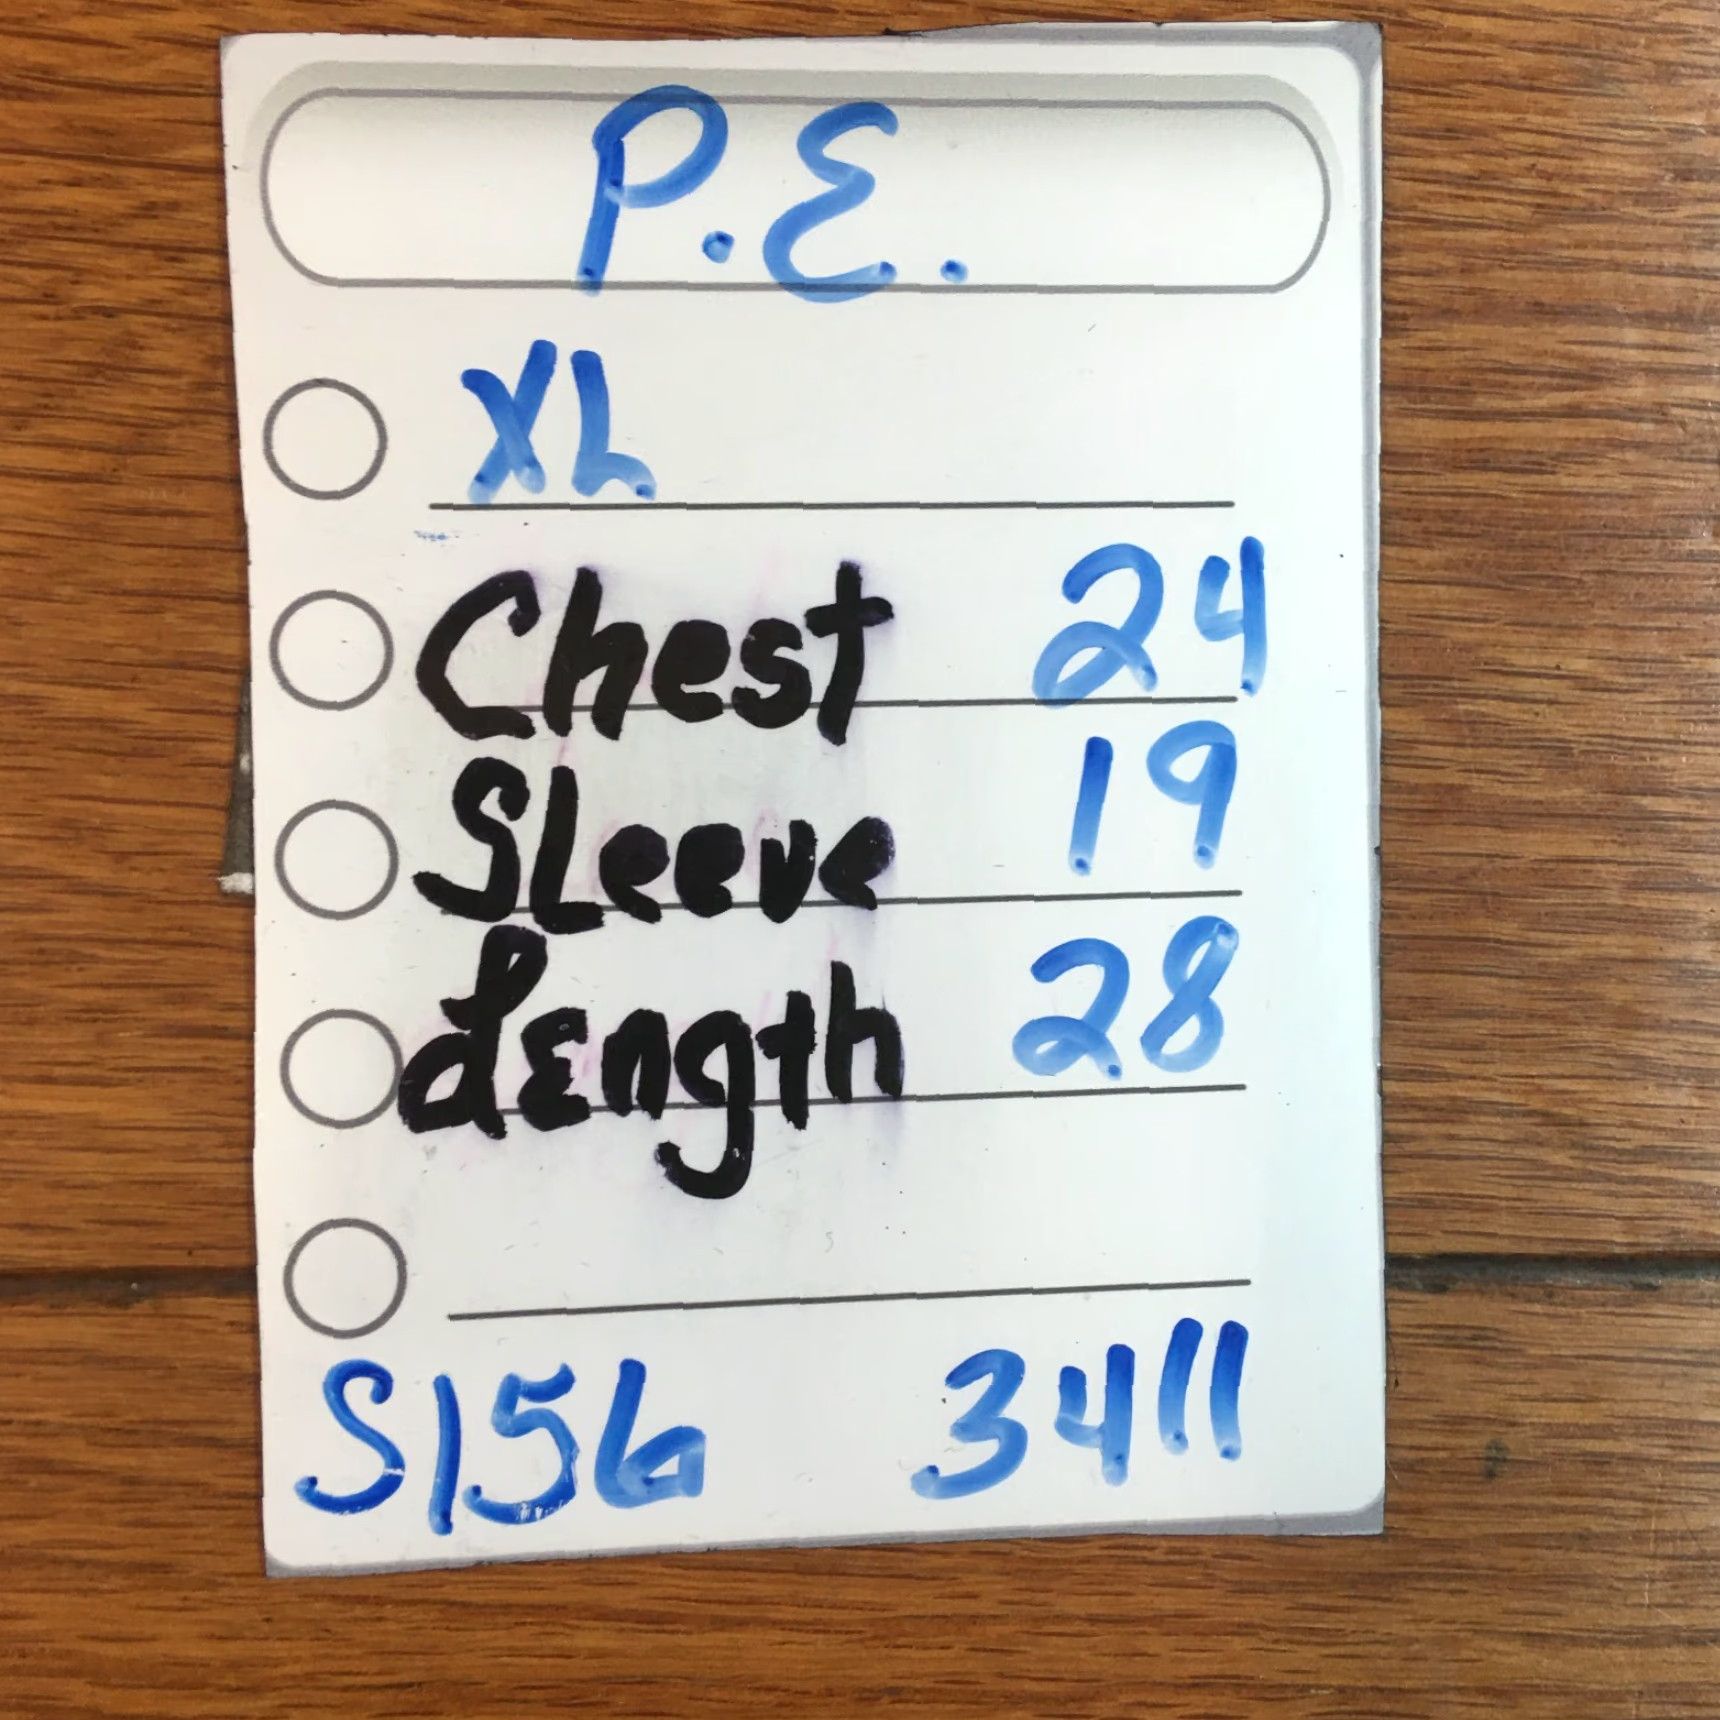 P.E.
XL
Chest 24
Sleeve 19
Length 28
S156 3411